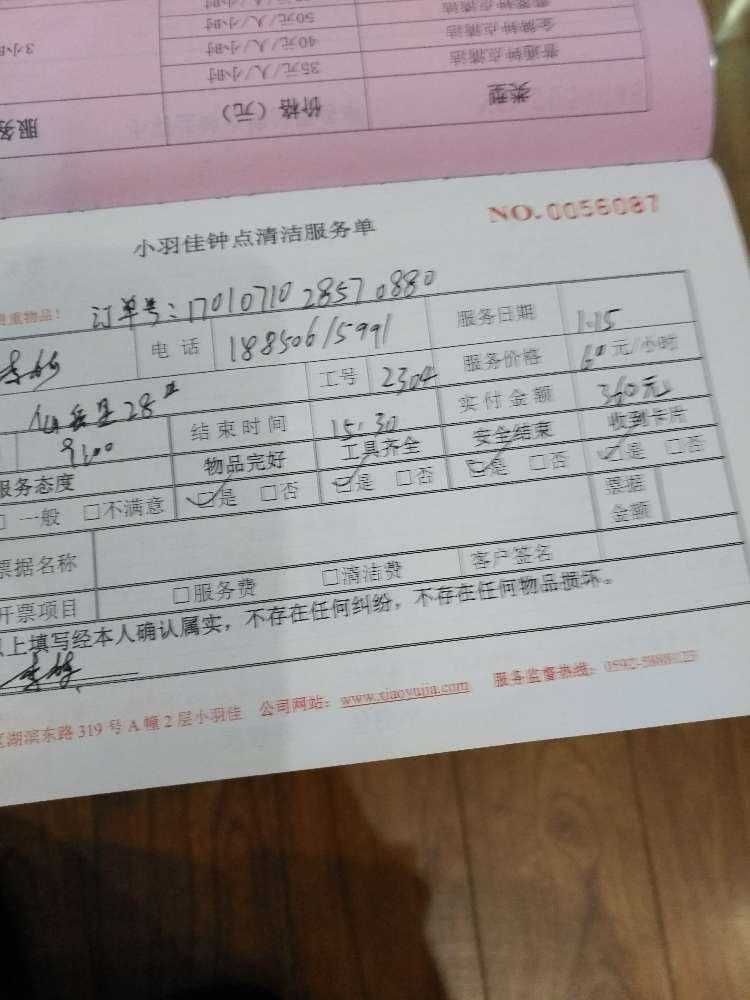 50元/人/小时
金牌钟点清洁
40元/人/小时
3小
普通钟点清洁
35元/人/小时
类型
价格（元）
服务
NO.0056087
小羽佳钟点清洁服务单
重物品！
订单号：170107102857 0880
电话 18850615991 服务日期 1.15
28
工号 2304 服务价格 60元/小时
9:00 结束时间 15:30 实付金额 360元
服务态度 物品完好 工具齐全 安全结束 收到卡片
□一般 □不满意 ☑是 □否 ☑是 □否 ☑是 □否 ☑是 □否
票据名称 票据金额
开票项目 □服务费 □清洁费 客户签名
以上填写经本人确认属实，不存在任何纠纷，不存在任何物品损坏。
区湖滨东路319号A幢2层小羽佳 公司网站：www.xiaoyujia.com 服务监督热线：0592-5888123